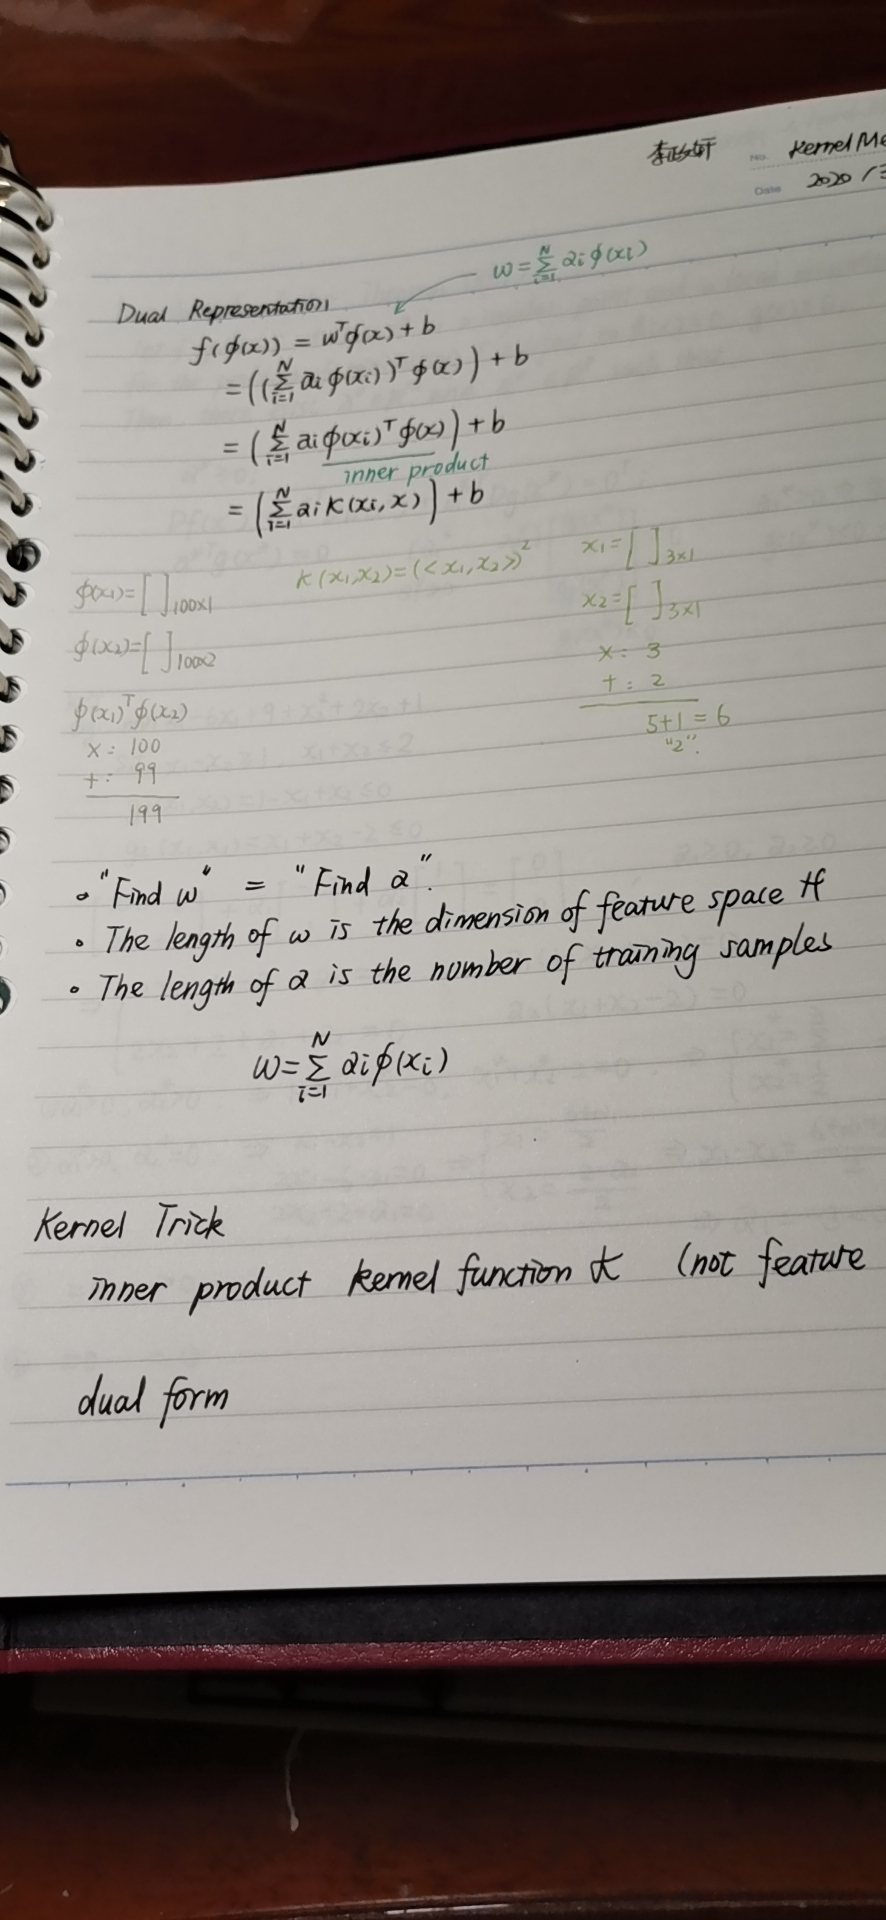 李政轩 No. Kernel Me
Date 2020 /3
w=∑_{i=1}^{N} aiϕ(xi)
Dual Representation
f(ϕ(x)) = w^Tϕ(x)+b
= ((∑_{i=1}^{N} aiϕ(xi))^Tϕ(x))+b
= (∑_{i=1}^{N} aiϕ(xi)^Tϕ(x))+b
inner product
= (∑_{i=1}^{N} aiK(xi,x))+b
ϕ(x1)=[ ]100x1 K(x1,x2)=(<x1,x2>)^2 x1=[ ]3x1
ϕ(x2)=[ ]100x2 x2=[ ]3x1
ϕ(x1)^Tϕ(x2)
x: 100
+: 99
199
x: 3
+: 2
5+1=6
"2".
• "Find w" = "Find a".
• The length of w is the dimension of feature space H
• The length of a is the number of training samples
w=∑_{i=1}^{N} aiϕ(xi)
Kernel Trick
inner product kernel function K (not feature
dual form